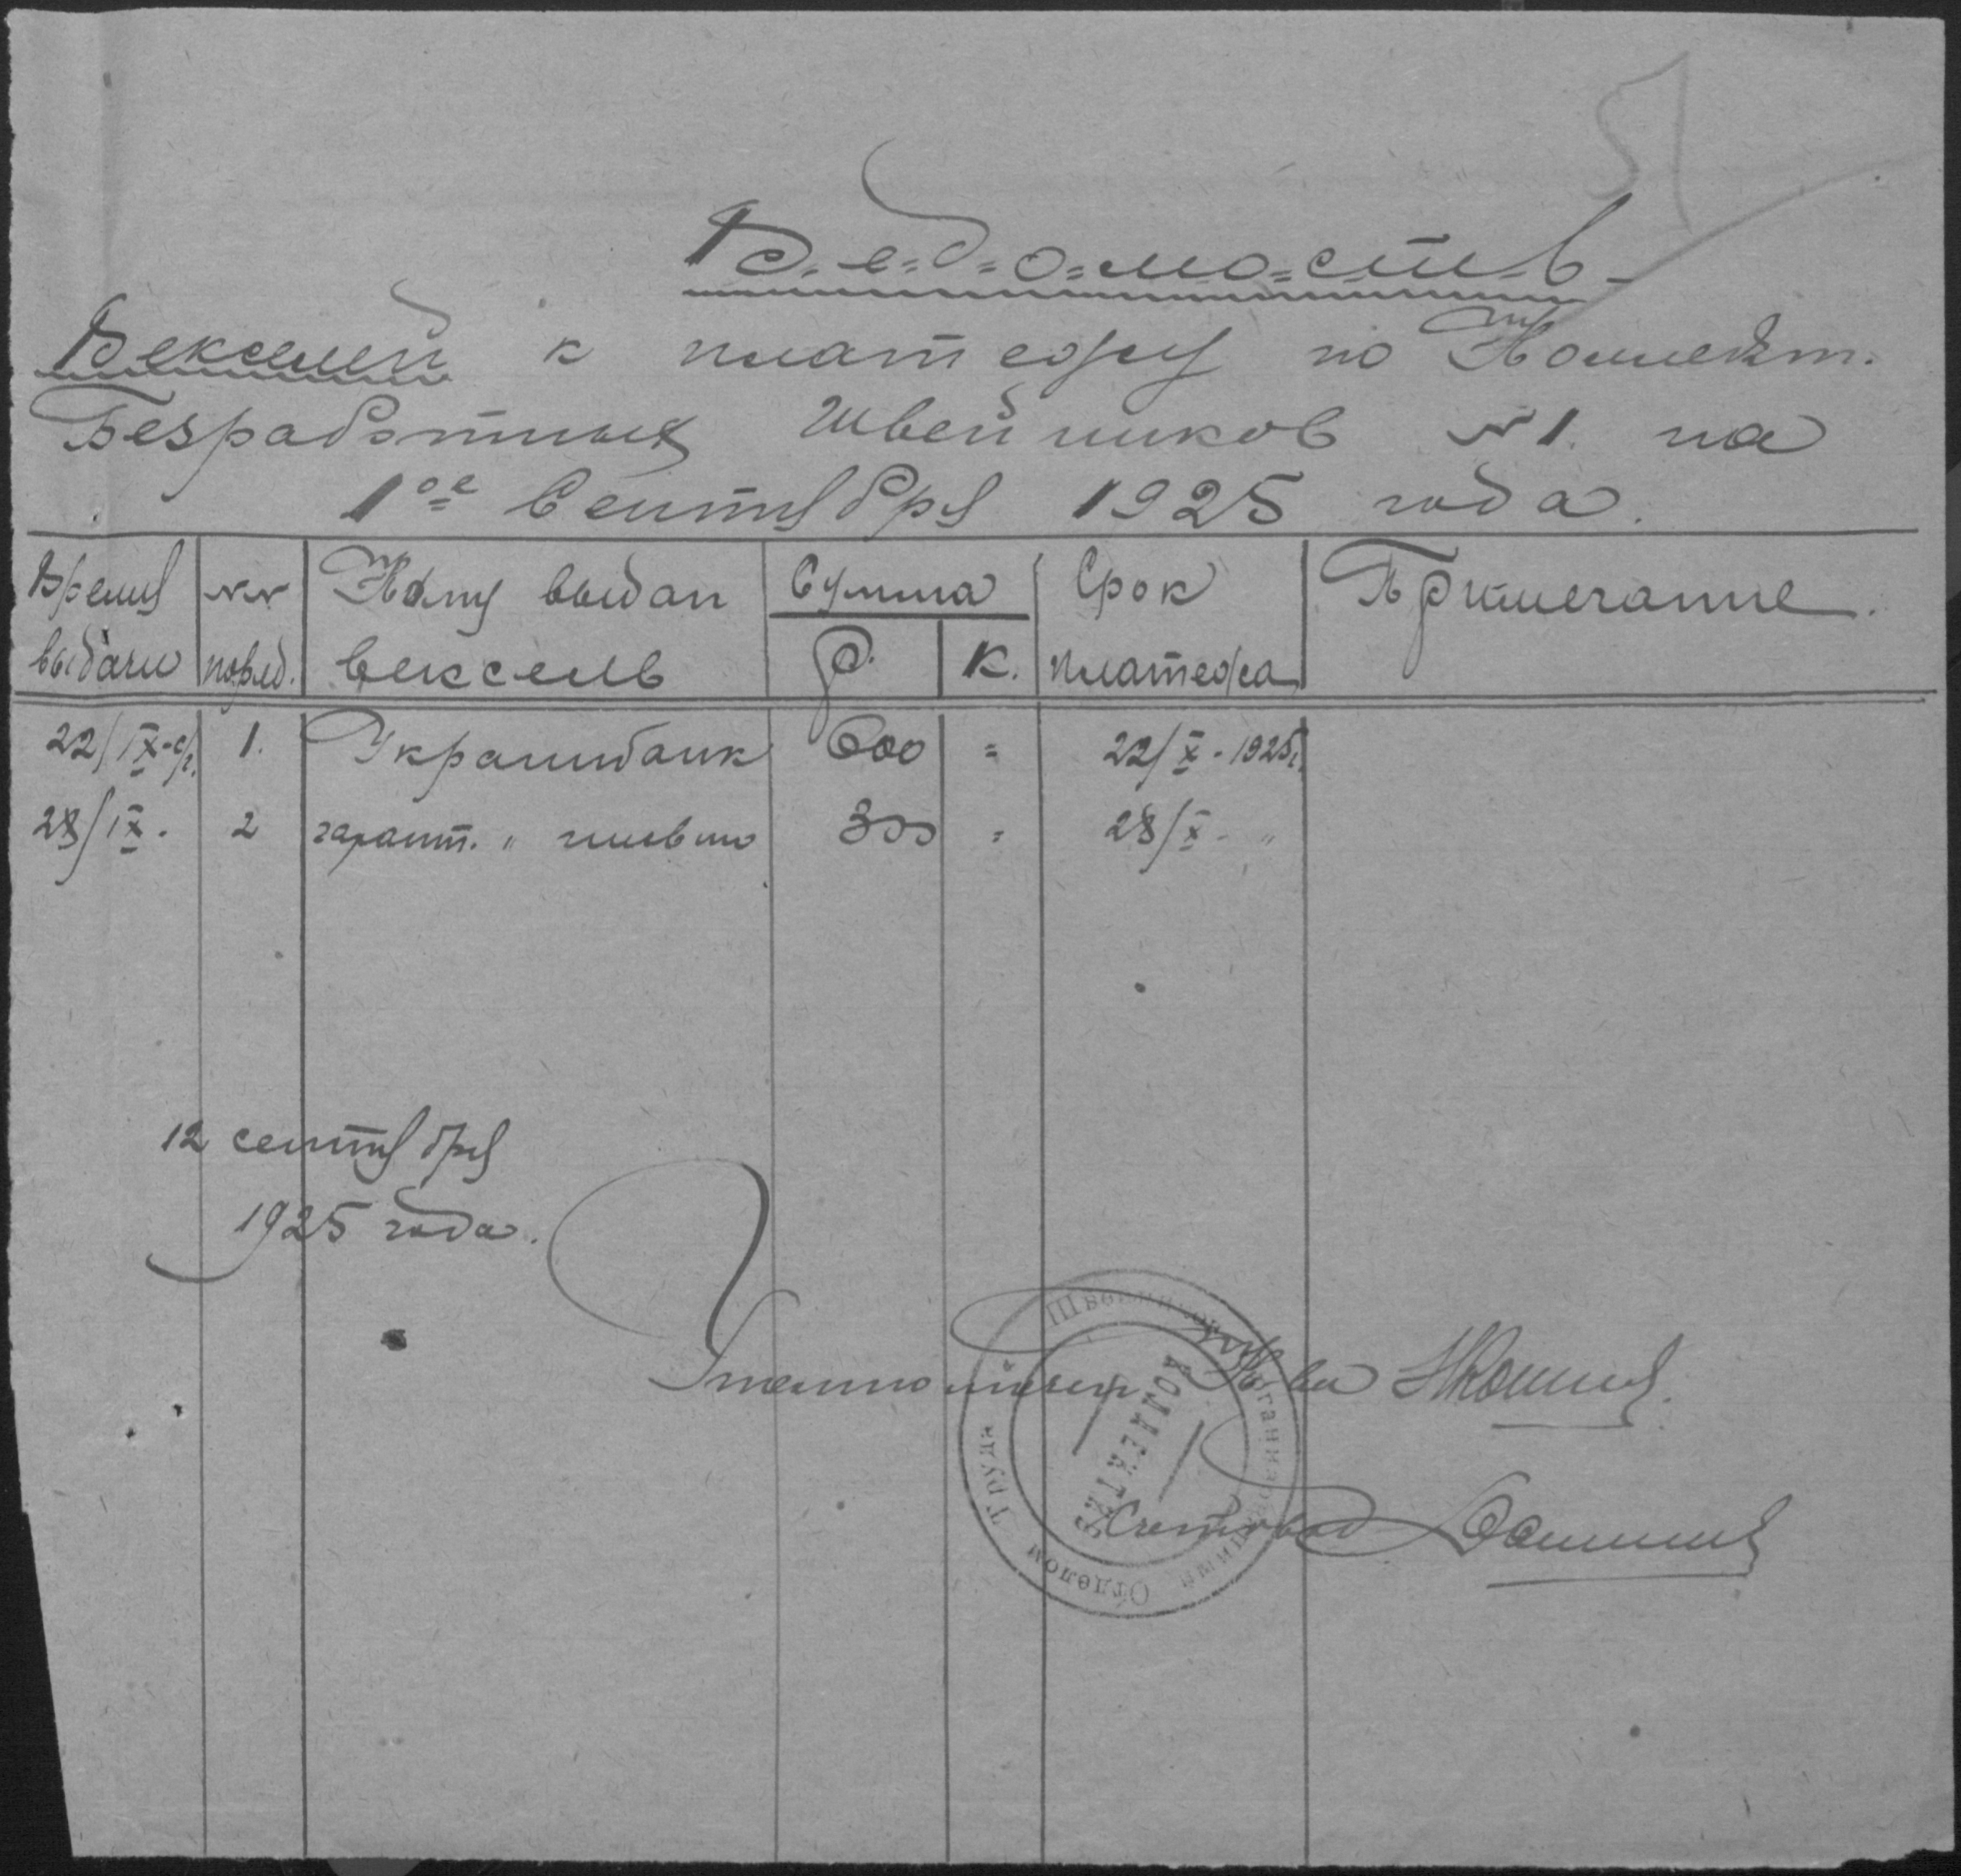 51
В.е=д=о=мо=сть-
Векселей к платежу по Коллект.
Безработных Швейников №1. на
1ое Сентября 1925 года.
Время выдачи | №№ поряд. | Кому выдан вексель | Сумма Р. К. | Срок платежа | Примечание.
22/IX-с/г. 1. Украинбанк 600 = 22/X-1925г.
28/IX. 2 гарант. " письмо 300 = 28/X- "
12 сентября
1925 года.
Уполномочен. Кол-ва
Счетовод
Швейников Организованный Отделом Труда
КОЛЛЕКТИВ